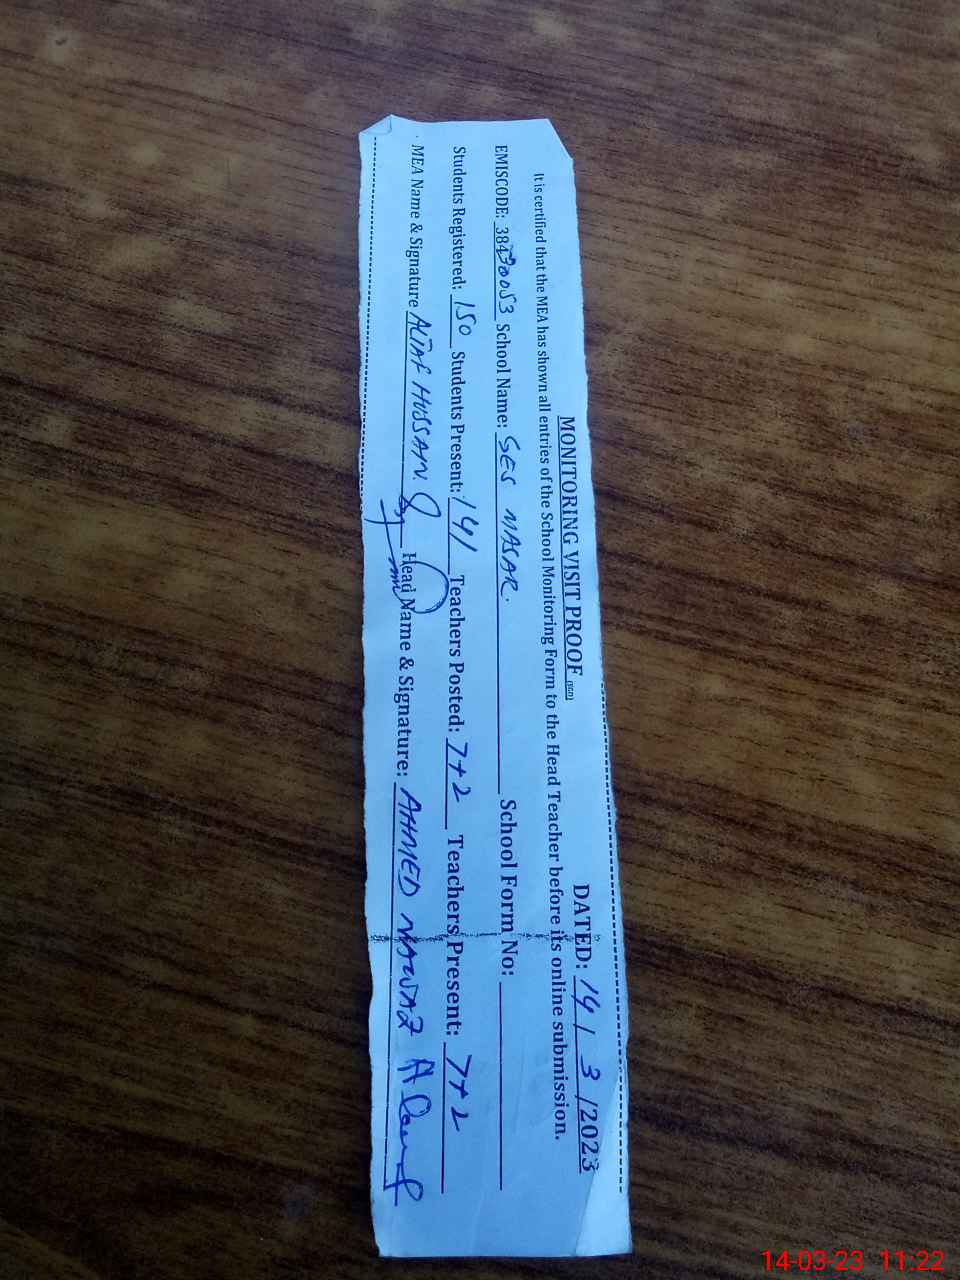 MONITORING VISIT PROOF (SGD) DATED: 14 / 3 /2023
It is certified that the MEA has shown all entries of the School Monitoring Form to the Head Teacher before its online submission.
EMISCODE: 38430053 School Name: SES NASAR. School Form No:
Students Registered: 150 Students Present: 141 Teachers Posted: 7+2 Teachers Present: 7+2
MEA Name & Signature ALTAF HUSSAIN. Head Name & Signature: AHMED NAWAZ
14-03-23 11:22